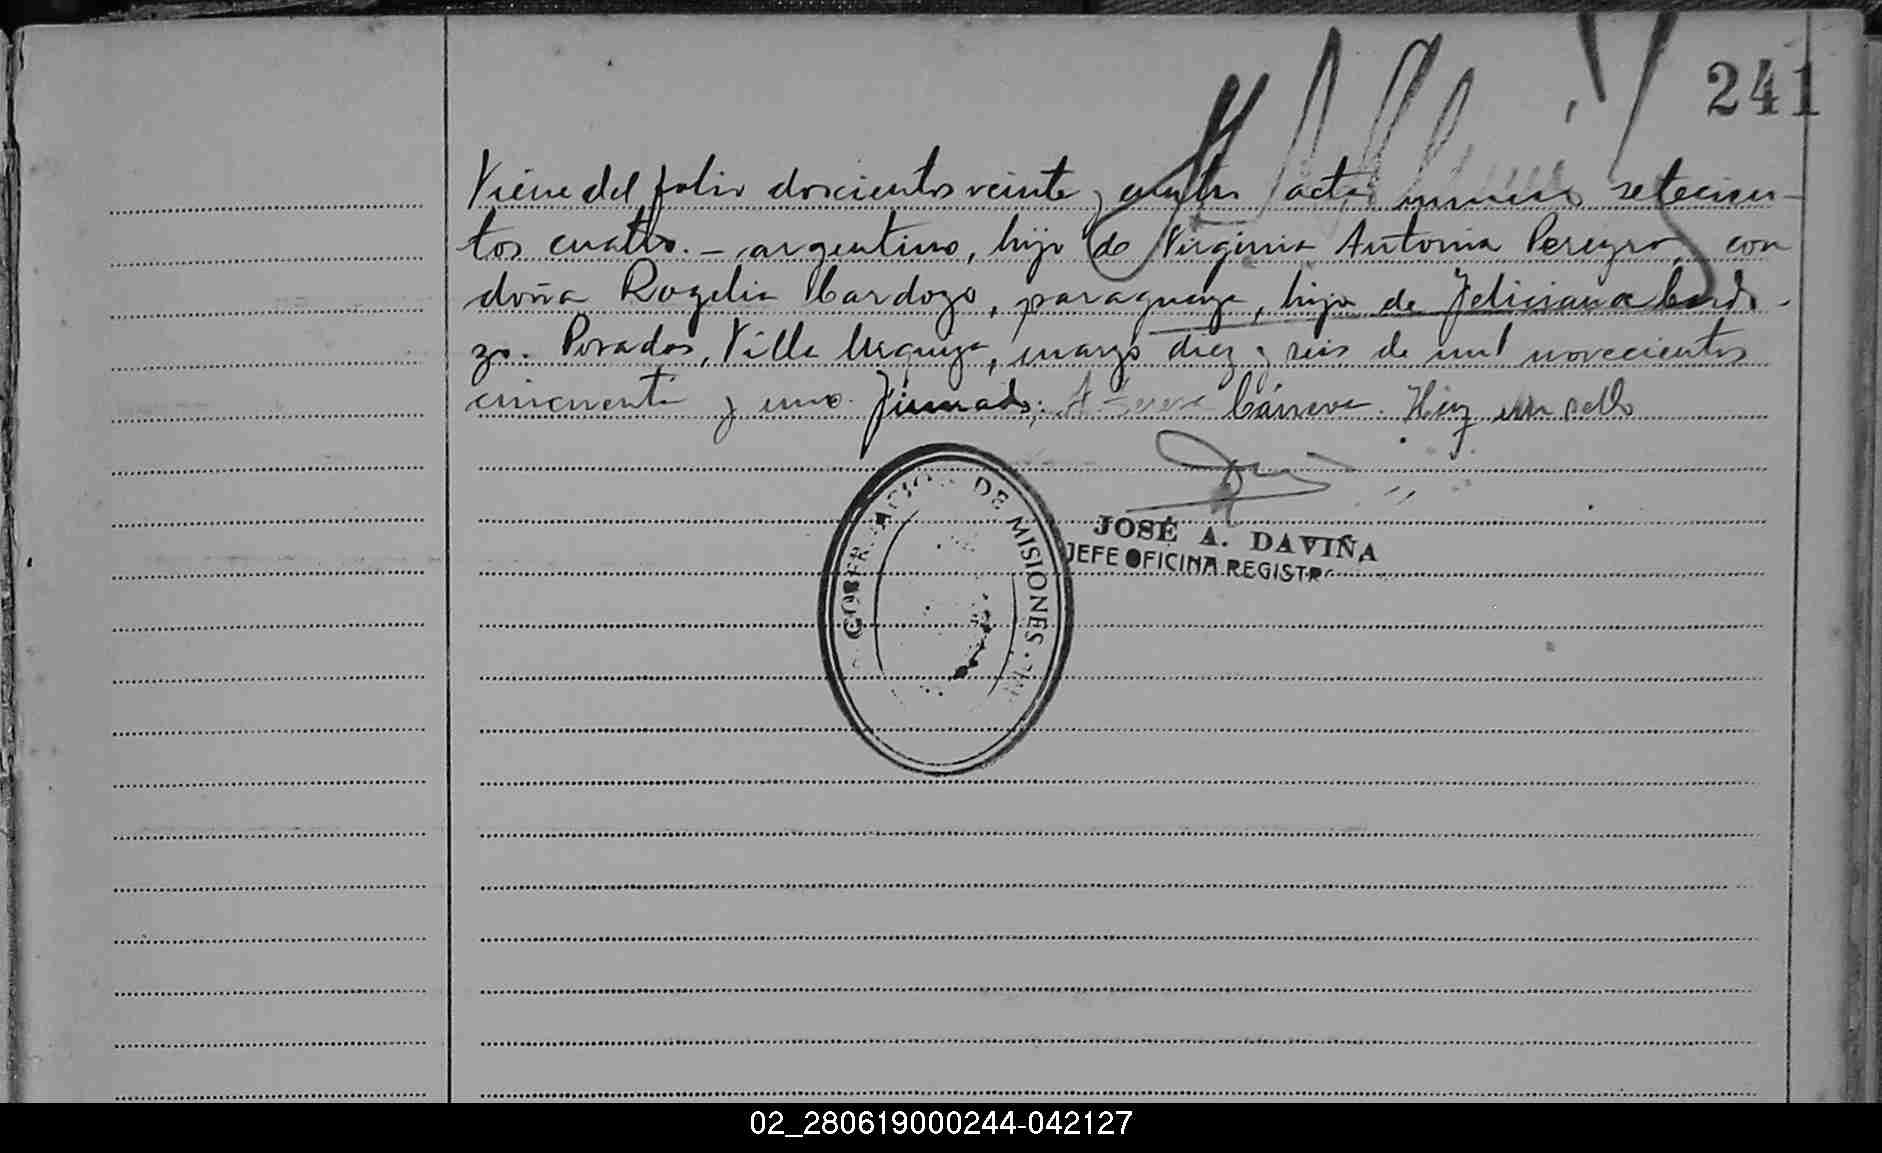 241
Viene del folio doscientos veinte y cuatro acta número setecien-
tos cuatro. - argentino, hijo de Virginia Antonia Pereyra, con
doña Rogelia Cardozo, paraguaya, hija de Feliciana Cardo-
zo. Posadas, Villa Urquiza, marzo diez y seis de mil novecientos
cincuenta y uno. Firmado: Cánneva. Hay un sello
GOBERNACION DE MISIONES
JOSÉ A. DAVIÑA
JEFE OFICINA REGISTRO
02_280619000244-042127